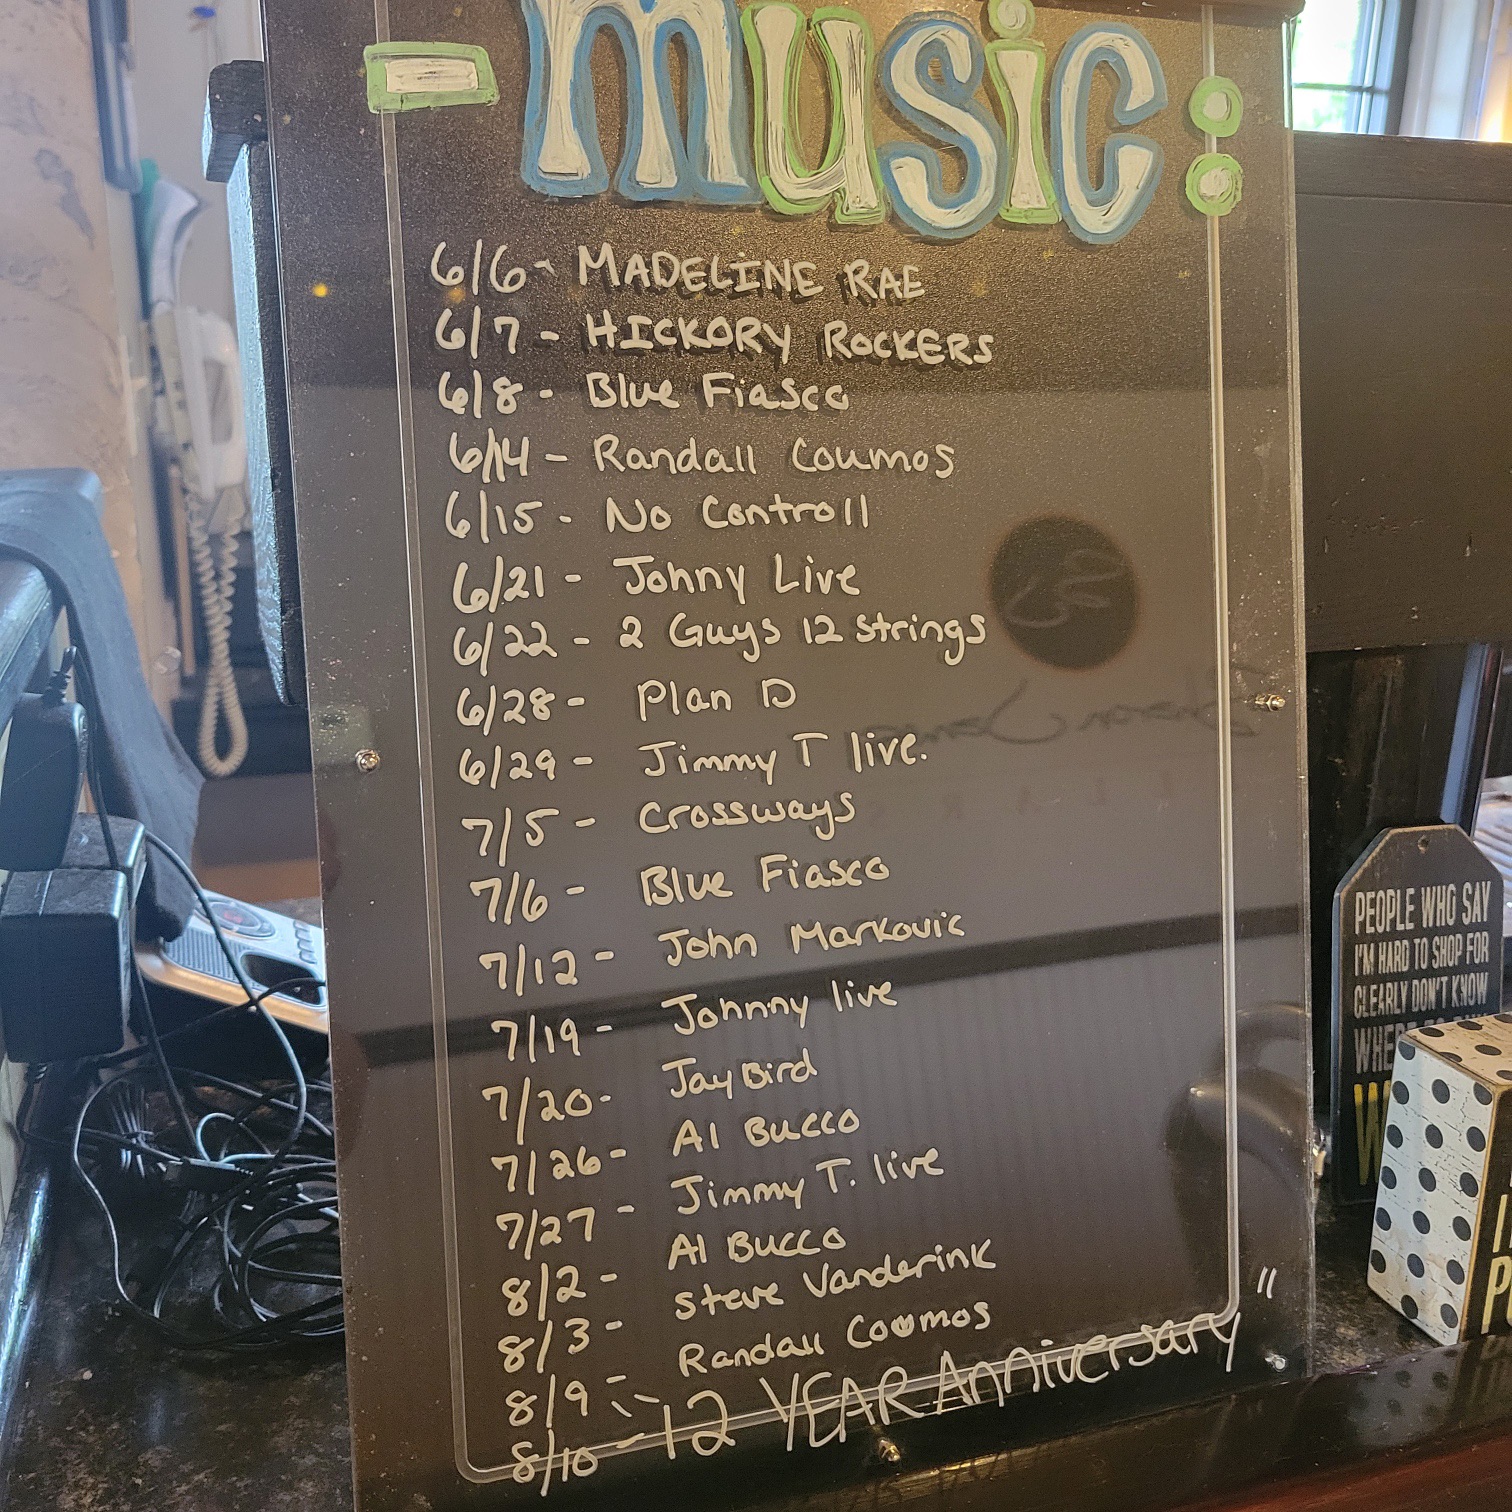 -music:
6/6- MADELINE RAE
6/7- HICKORY ROCKERS
6/8- Blue Fiasco
6/14- Randall Coumos
6/15- No Controll
6/21- Johny Live
6/22- 2 Guys 12 strings
6/28- Plan D
6/29- Jimmy T live.
7/5- Crossways
7/6- Blue Fiasco
7/12- John Markovic
7/19- Johnny live
7/20- Jay Bird
7/26- Al Bucco
7/27- Jimmy T. live
8/2- Al Bucco
8/3- Steve Vanderink
8/9- Randall Coumos
8/10- "12 YEAR Anniversary"
PEOPLE WHO SAY
I'M HARD TO SHOP FOR
CLEARLY DON'T KNOW